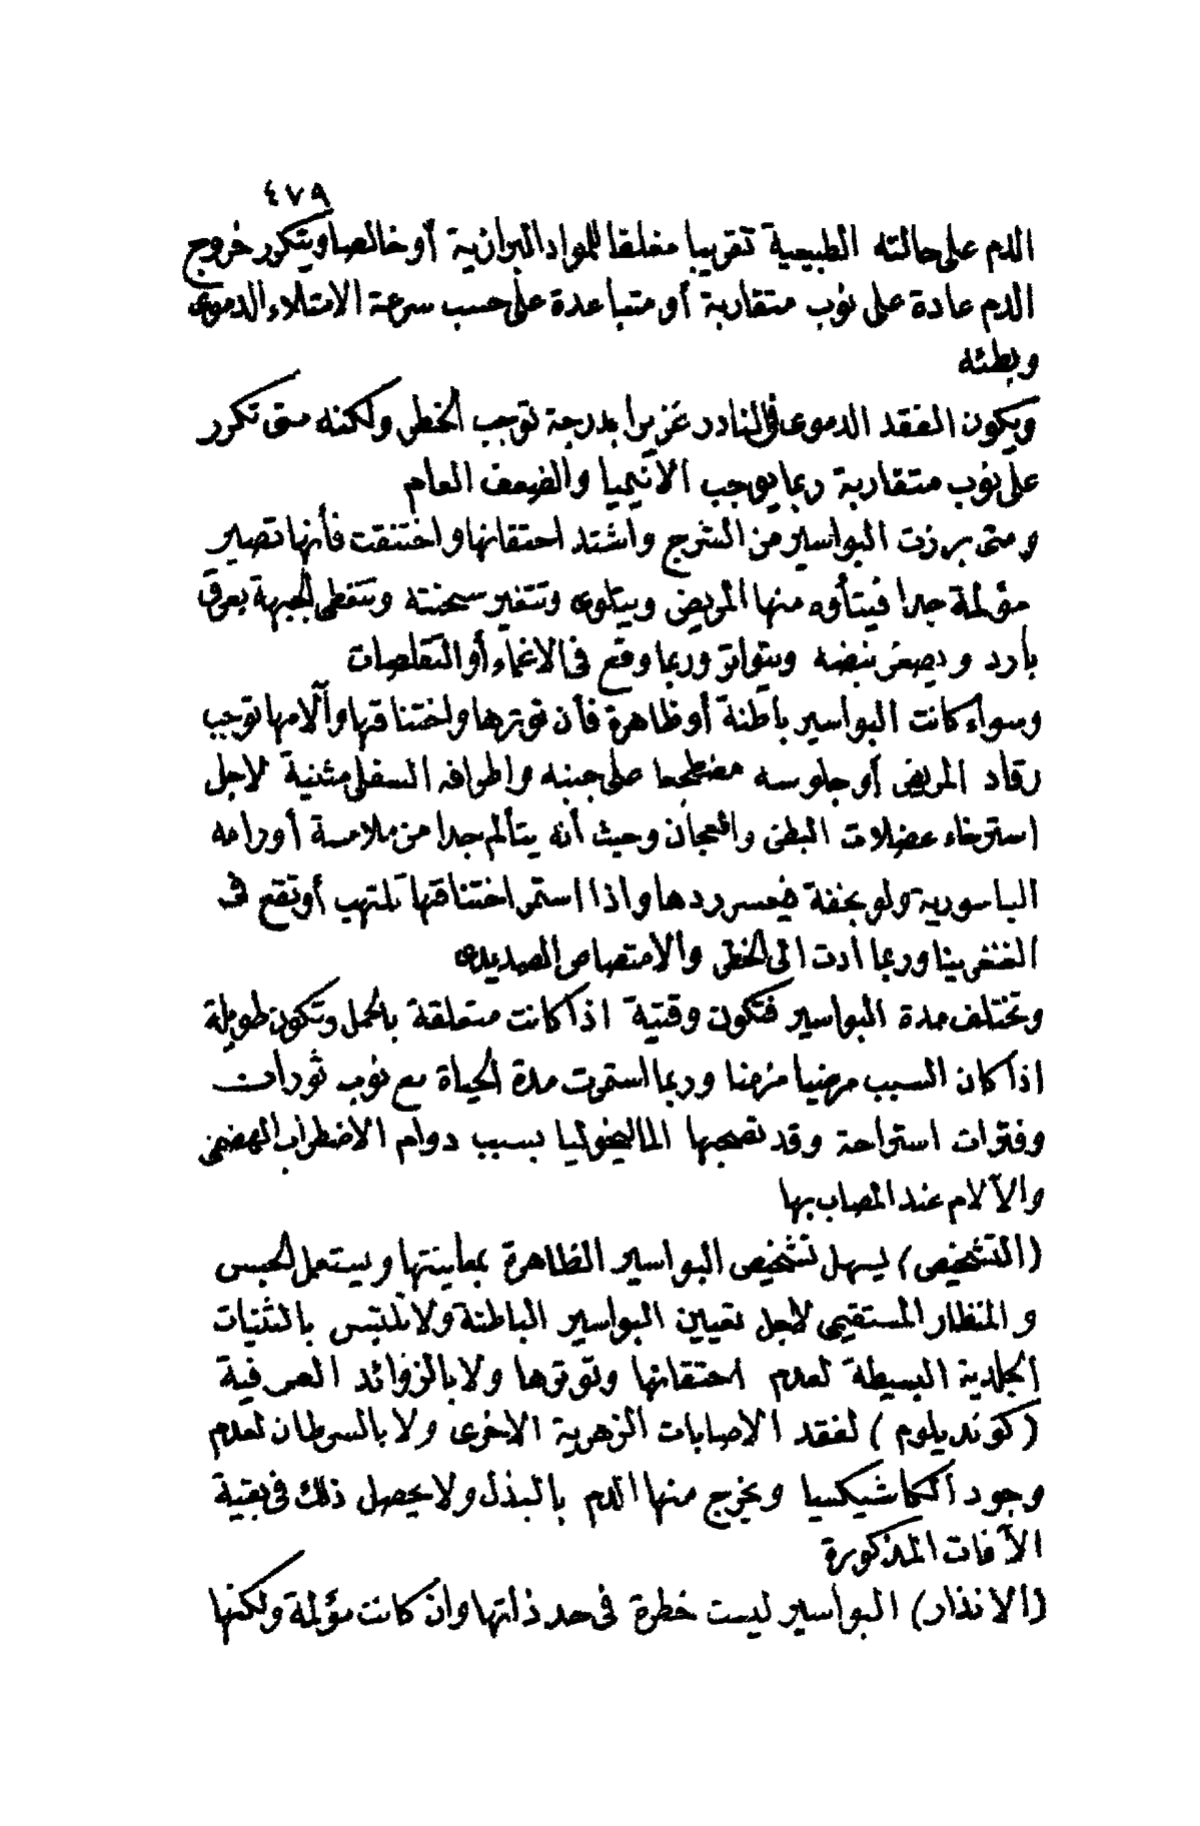 ٤٧٩
الدم على حالته الطبيعية تقريبا مغلفا للمواد البرازية أو خالصا ويتكرر خروج
الدم عادة على نوب متقاربة أو متباعدة على حسب سرعة الامتلاء الدموى
وبطئه
ويكون الفقد الدموى فى النادر غزيرا بدرجة توجب الخطر ولكنه متى تكرر
على نوب متقاربة ربما يوجب الانيميا والضعف العام
ومتى برزت البواسير من الشرج واشتد احتقانها واختنقت فأنها تصير
مؤلمة جدا فيتأوه منها المريض ويتلوى وتتغير سحنته وتتغطى الجبهة بعرق
بارد ويصغر نبضه ويتواتر وربما وقع فى الاغماء أو التقلصات
وسواء كانت البواسير باطنة أو ظاهرة فأن توترها واختناقها وآلامها توجب
رقاد المريض أو جلوسه مضطجعا على جنبه واطرافه السفلى مثنية لاجل
استرخاء عضلات البطن والعجان وحيث أنه يتألم جدا من ملامسة أورامه
الباسورية ولو بخفة فيعسر ردها واذا استمر اختناقها تلتهب أو تقع فى
الغنغرينا وربما ادت الى الخطر والامتصاص الصديدى
وتختلف مدة البواسير فتكون وقتية اذا كانت متعلقة بالحمل وتكون طويلة
اذا كان السبب مرضيا مزمنا وربما استمرت مدة الحياة مع نوب ثورات
وفترات استراحة وقد تصحبها الماليخوليا بسبب دوام الاضطراب الهضمى
والآلام عند المصاب بها
(التشخيص) يسهل تشخيص البواسير الظاهرة بمعاينتها ويستعمل الجس
والمنظار المستقيمى لاجل تعيين البواسير الباطنة ولا تلتبس بالثنيات
الجلدية البسيطة لعدم احتقانها وتوترها ولا بالزوائد العرفية
(كونديلوم) لفقد الاصابات الزهرية الاخرى ولا بالسرطان لعدم
وجود الكاشيكسيا ويخرج منها الدم بالبذل ولا يحصل ذلك فى بقية
الآفات المذكورة
(الانذار) البواسير ليست خطرة فى حد ذاتها وان كانت مؤلمة ولكنها